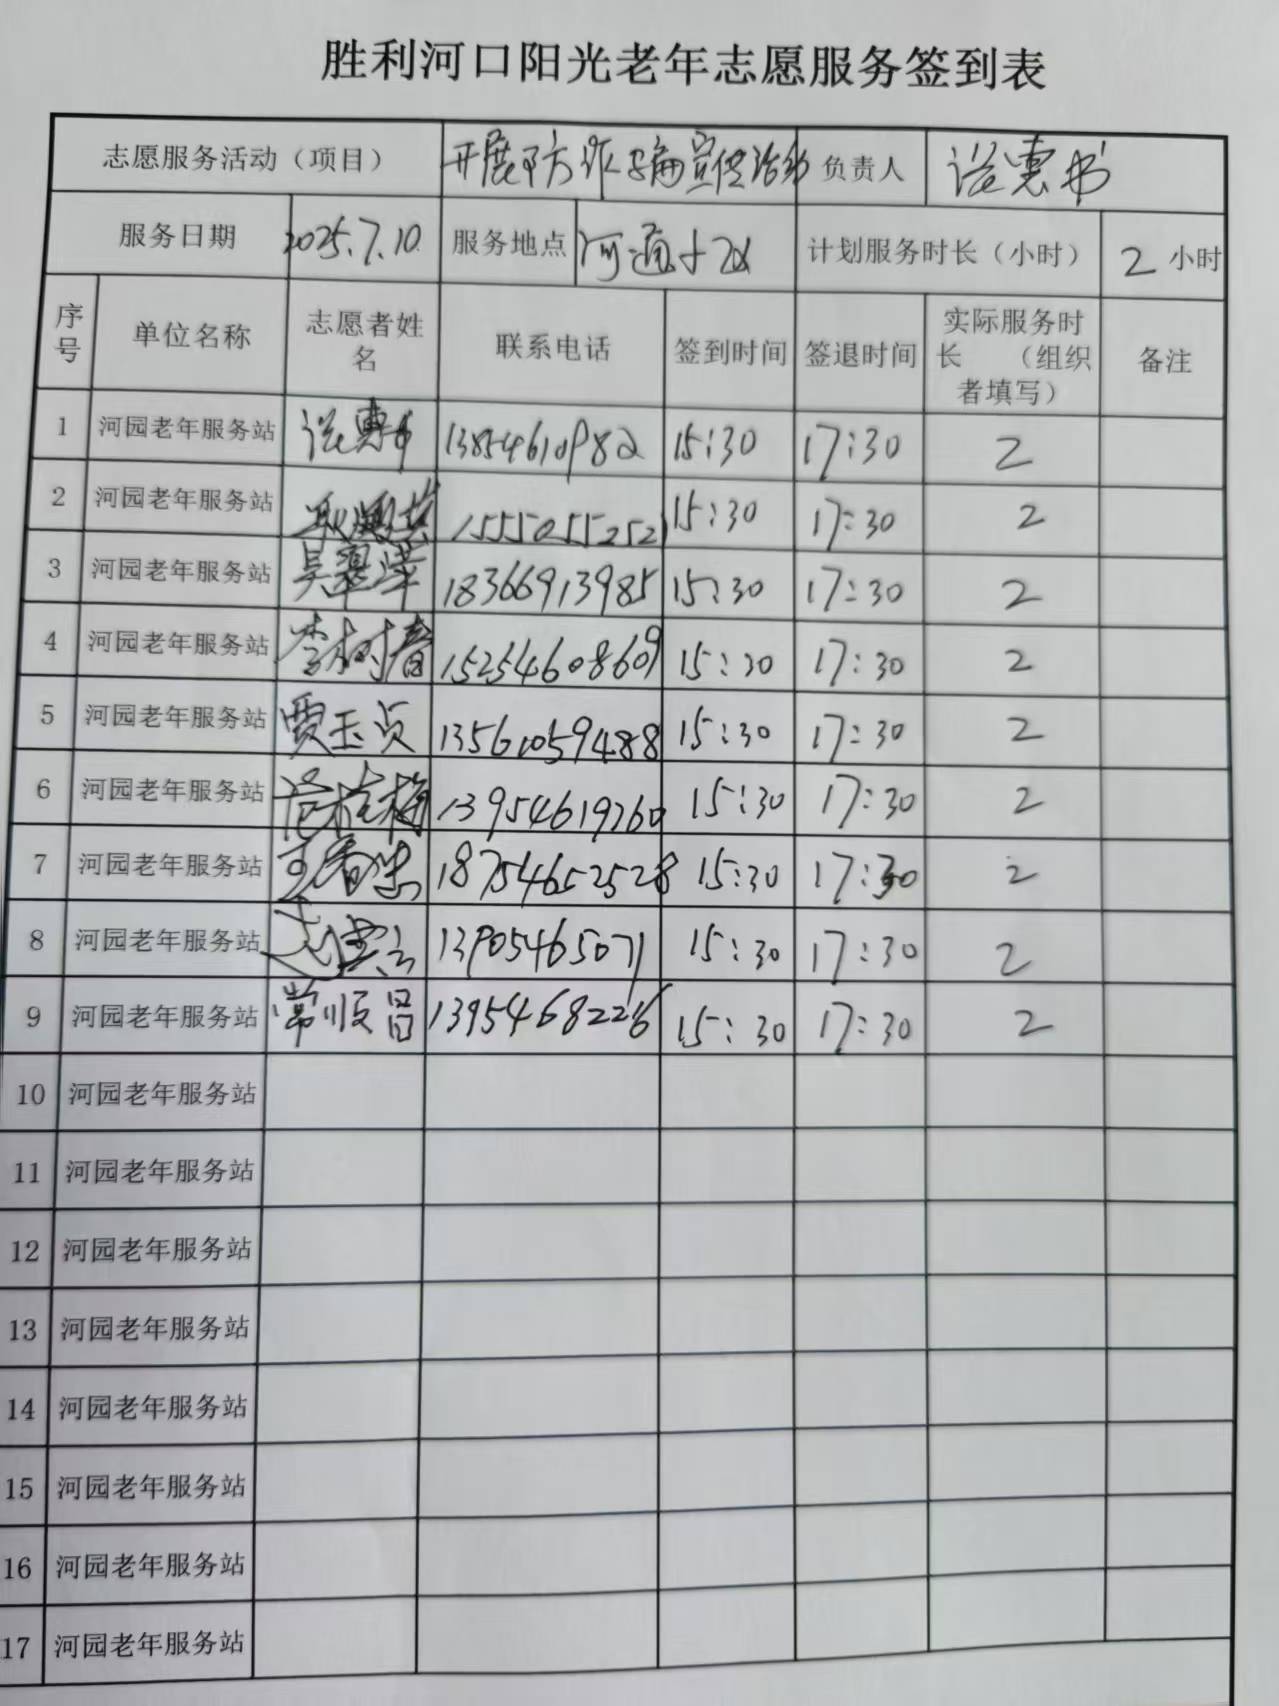 胜利河口阳光老年志愿服务签到表
志愿服务活动（项目） 开展防诈骗宣传活动 负责人
服务日期 2025.7.10. 服务地点 河通小区 计划服务时长（小时） 2 小时
序号 单位名称 志愿者姓名 联系电话 签到时间 签退时间 实际服务时长 （组织者填写） 备注
1 河园老年服务站 13854610982 15:30 17:30 2
2 河园老年服务站 15550552521 15:30 17:30 2
3 河园老年服务站 吴翠萍 18366913985 15:30 17:30 2
4 河园老年服务站 李树春 15254608609 15:30 17:30 2
5 河园老年服务站 贾玉贞 13561059488 15:30 17:30 2
6 河园老年服务站 范桂梅 13954619760 15:30 17:30 2
7 河园老年服务站 18754652528 15:30 17:30 2
8 河园老年服务站 13905465071 15:30 17:30 2
9 河园老年服务站 常顺昌 13954682226 15:30 17:30 2
10 河园老年服务站
11 河园老年服务站
12 河园老年服务站
13 河园老年服务站
14 河园老年服务站
15 河园老年服务站
16 河园老年服务站
17 河园老年服务站